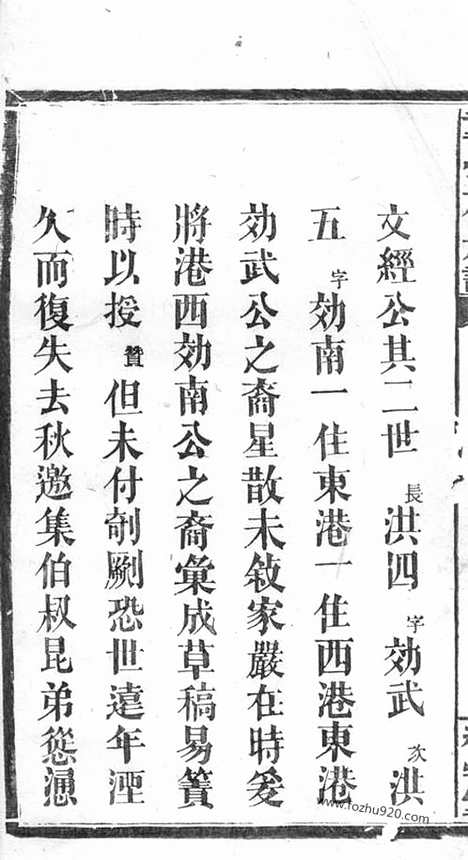 文經公其二世長洪四字効武次洪
五字効南一住東港一住西港東港
効武公之裔星散未敍家嚴在時爰
將港西効南公之裔彙成草稿易簀
時以授贊但未付剞劂恐世遠年湮
久而復失去秋邀集伯叔昆弟慫恿
www.fozhu920.com